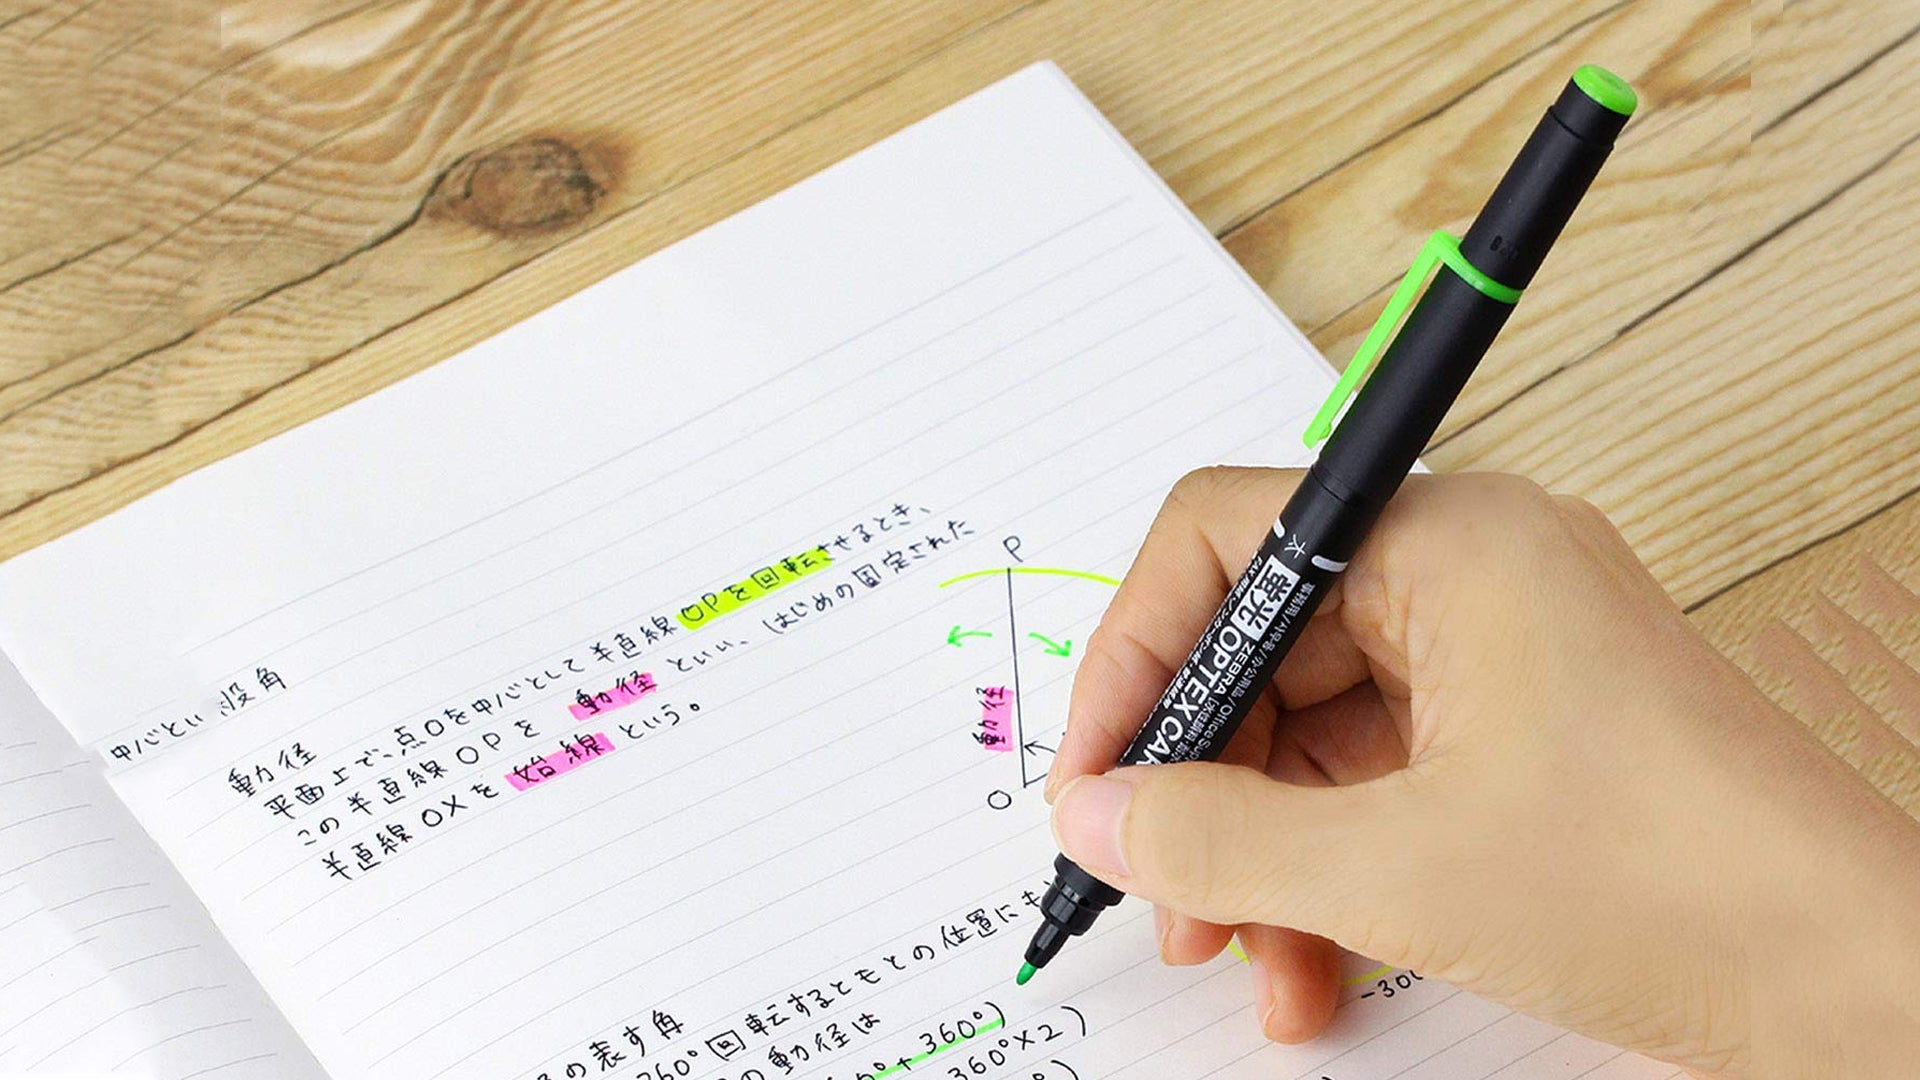 中心といい、
角
動径
平面上で、点Oを中心として半直線OPを回転させるとき、
この半直線OPを 動径 といい、はじめの固定された
半直線OXを 始線 という。
P
動径
O
の表す角
360°回転するともとの位置にも
の動径は
+360°)
360°×2)
°)
-300
太
蛍光
ZEBRA
OPTEX CAR
事務用/사무용/办公用品/Office Supp